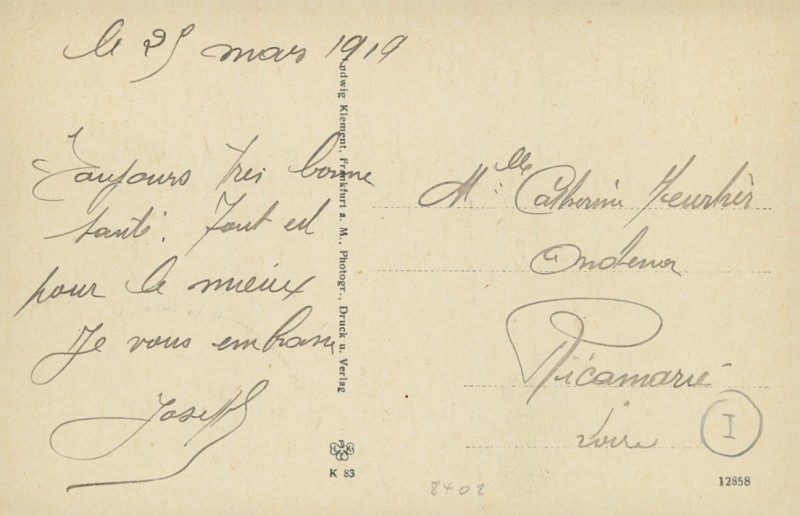 le 25 mars 1919
Toujours très bonne
santé. Tout est
pour le mieux
Je vous embrasse
Joseph
Ludwig Klement, Frankfurt a. M., Photogr., Druck u. Verlag
K 83
Mlle Catherine
Ricamarie
Loire
I
8402
12858